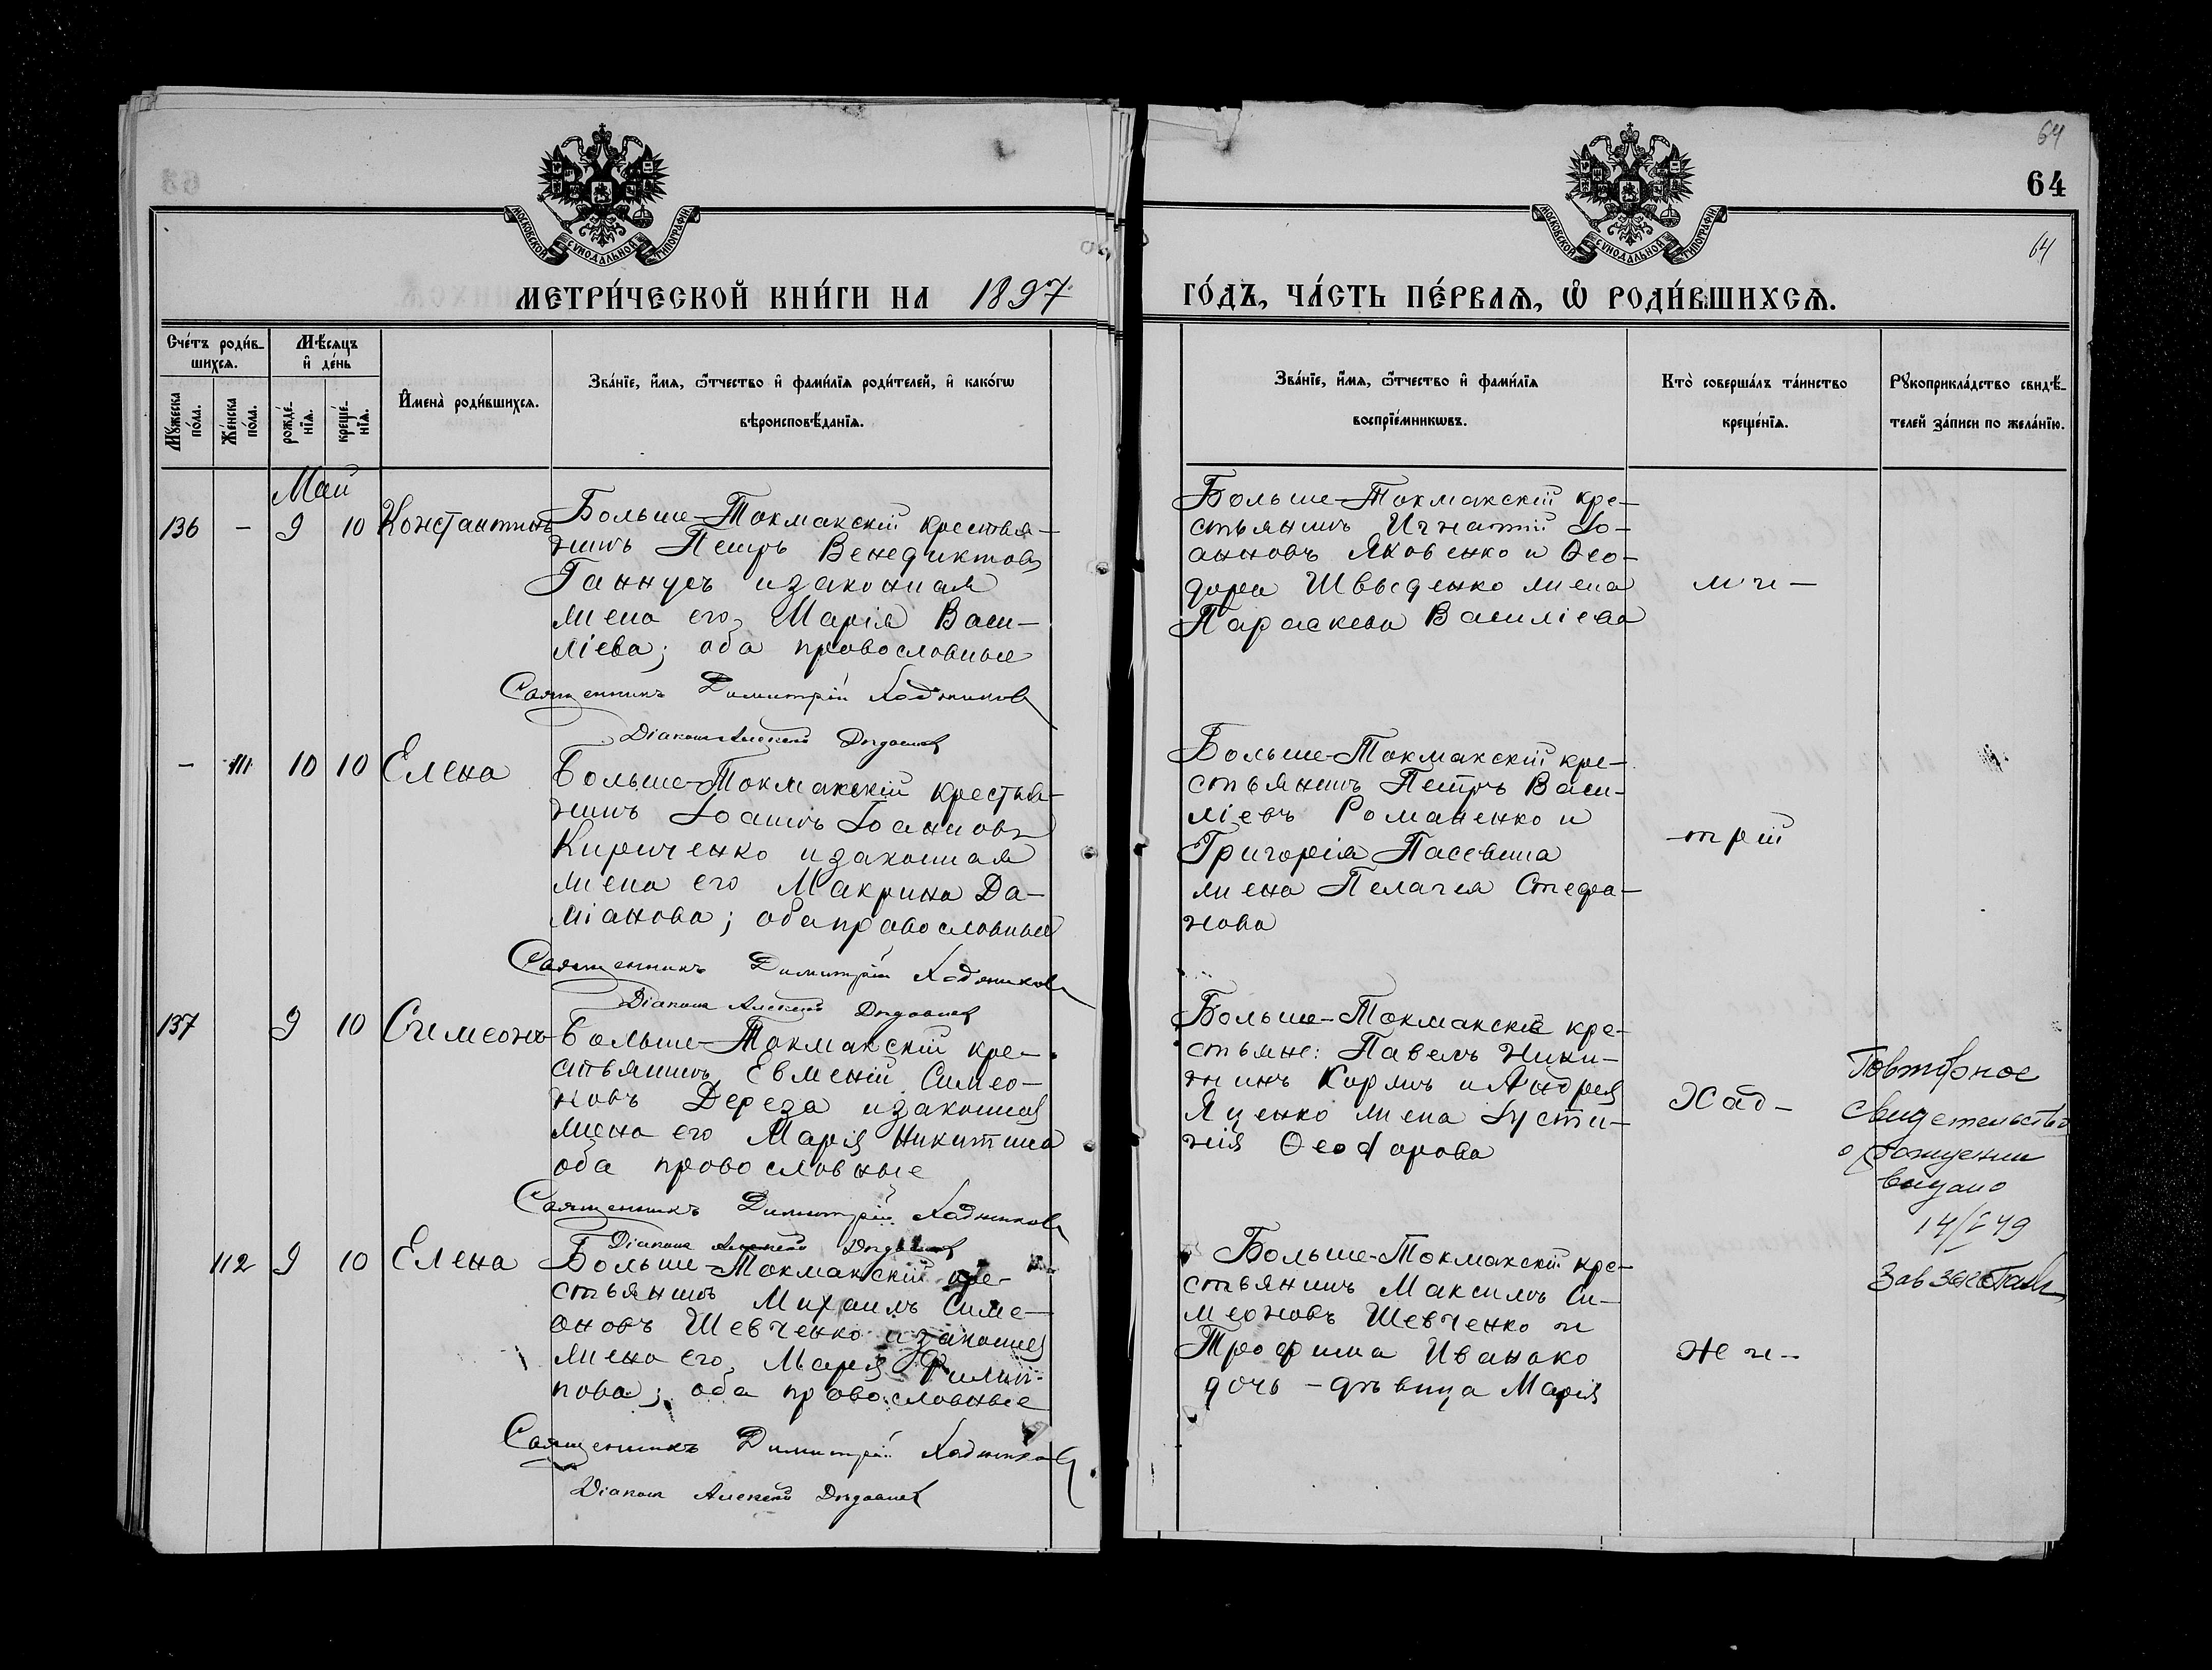 64
64
МОСКОВСКОЙ СѴНОДАЛЬНОЙ ТИПОГРАФІИ
МОСКОВСКОЙ СѴНОДАЛЬНОЙ ТИПОГРАФІИ
64
МЕТРИ́ЧЕСКОЙ КНИ́ГИ НА 1897
ГО́ДЪ, ЧА́СТЬ ПЕ́РВАЯ, Ѽ РОДИ́ВШИХСЯ.
Сче́тъ роди́в-
шихся.
Мѣ́сяцъ
и҆ де́нь
Мꙋ́жеска
по́ла.
Же́нска
по́ла.
рожде́-
нїя.
креще́-
нїя.
И҆мена̀ роди́вшихся.
Зва́нїе, и҆́мя, ѻ҆́тчество и҆ фами́лїя роди́телей, и҆ како́гѡ
вѣроисповѣ́данїя.
Зва́нїе, и҆́мя, ѻ҆́тчество и҆ фами́лїя
воспрїе́мникѡвъ.
Кто̀ соверша́лъ та́инство
креще́нїя.
Рꙋкоприкла́дство свидѣ́-
телей за́писи по жела́нїю.
Май
136 – 9 10 Константинъ
Больше-Токмакскій крестья-
нинъ Петръ Венедиктовъ
Ганнусъ и законная
жена его Марія Васи-
ліева; оба православные
Священникъ Димитрій Хаджиновъ
Діаконъ Алексей
Больше-Токмакскій кре-
стьянинъ Игнатій Іо-
анновъ Яковенко и Ѳео-
дора Швыденко жена
Параскева Василіева
ми-
– 111 10 10 Елена
Больше-Токмакскій крестья-
нинъ Іоаннъ Іоанновъ
Кириченко и законная
жена его Макрина Да-
міанова; оба православные
Священникъ Димитрій Хаджиновъ
Діаконъ Алексей
Больше-Токмакскій кре-
стьянинъ Петръ Васи-
ліевъ Романенко и
Григорія
жена Пелагея Стефа-
нова
трій
137 9 10 Симеонъ
Больше-Токмакскій кре-
стьянинъ Евменій Симео-
новъ Дереза и законная
жена его Марія Никитина
оба православные
Священникъ Димитрій Хаджиновъ
Діаконъ Алексей
Больше-Токмакскіе кре-
стьяне: Павелъ Ники-
тинъ и Андрея
Яценко жена Іусти-
нія Ѳеодорова
Хад-
Повторное
свидетельство
о рождении
выдано
14/I 49
112 9 10 Елена
Больше-Токмакскій кре-
стьянинъ Михаилъ Симе-
оновъ Шевченко и законная
жена его Марія Филип-
пова; оба православные
Священникъ Димитрій Хаджиновъ
Діаконъ Алексей
Больше-Токмакскій кре-
стьянинъ Максимъ Си-
меоновъ Шевченко и
Трофима Иванако
дочь - дѣвица Марія
жи-